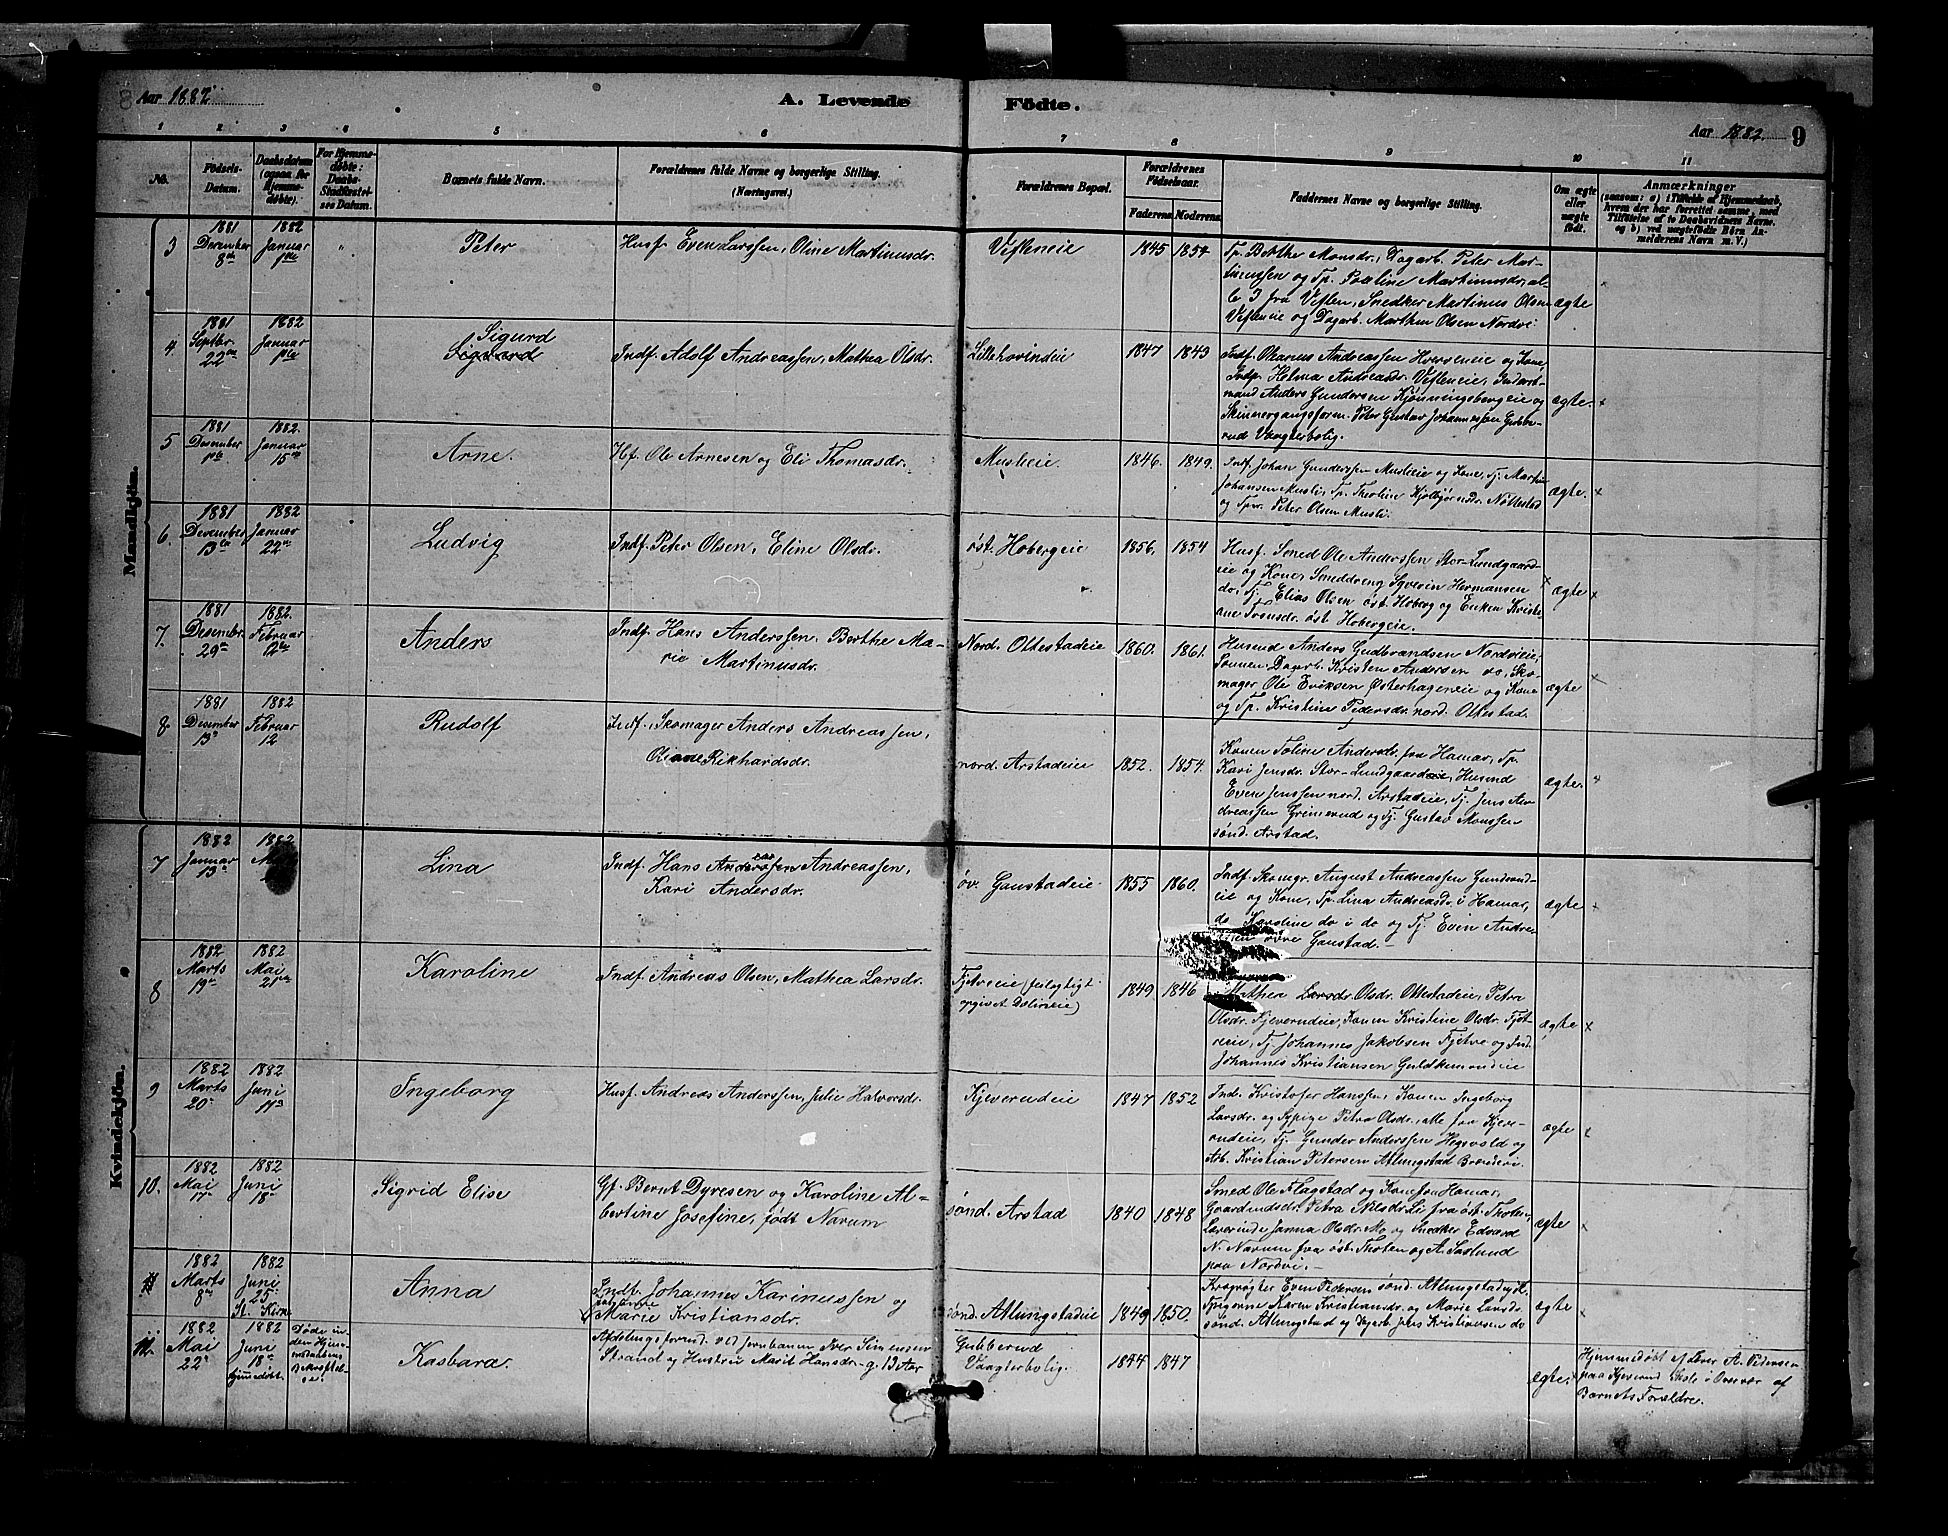 Aar 1882
A. Levende Födte.
Aar 1882. 9
1 2 3 4 5 6 7 8 9 10 11
No.
Födsels-
Datum.
Daabsdatum
(ogsaa for
Hjemme-
døbte).
For Hjemme-
døbte:
Daabs-
Stadfæstel-
ses Datum.
Barnets fulde Navn.
Forældrenes fulde Navne og borgerlige Stilling.
(Næringsvei.)
Forældrenes Bopæl.
Forældrenes
Födselsaar.
Faderens Moderens
Faddernes Navne og borgerlige Stilling.
Om ægte
eller
uægte
født.
Anmærkninger
(saasom: a) i Tilfælde af Hjemmedaab,
hvem der har forrettet samme, med
Tilføielse af to Daabsvidners Navne.
og b) ved uægtefødte Børn An-
melderens Navn m. V.)
Mandkjön.
3
1881
December
8de
1882
Januar
1ste
Peter
Husf. Even Larssen, Oline Martinusdr.
Vefleneie
1845 1854
Tp. Berthe Monsdr., Dagarb. Peter Mar-
tinussen og Tp. Pauline Martinusdr., al-
le 3 fra Veflen, Snedker Martinus Olsen
Vefleneie og Dagarb. Marthin Olsen Nordvi
ægte
4.
1881
Septbr
22de
1882
Januar
1ste
Sigurd
Indf. Adolf Andreassen, Mathea Olsdr.
Lillehovindeie
1847 1843
Indf. Okarius Andreassen Hverveneie og Kone,
Indp. Helma Andreasdr. Vefleneie, Indert-
mand Anders Gundersen Kjønningsbergeie og
Skinnergangsform. Peter Gustav Johannessen Gubbe-
rud Vangterbolig.
ægte.
5
1881
Desember
1ste
1882.
Januar
15de
Arne.
Hf. Ole Arnesen og Eli Thomasdr.
Muslieie.
1846. 1849.
Indf. Johan Gunderssen Muslieie og Kone, Tj. Martin
Johansen Musli, Tp. Theoline Kjølbjørnsdr. Nøttestad
og Tpr. Peter Olsen Musli.
ægte.
6.
1881
December
13de
1882
Januar
22de
Ludvig
Indf. Peter Olsen, Eline Olsdr.
öst. Hobergeie
1856. 1854
Husf. Smed Ole Anderssen Stor-Lundgaard-
eie og Kone, Smeddreng Syverin Hermansen
do, Tj. Elias Olsen öst. Hoberg og Enken Kristi-
ane Ivensdr. öst. Hobergeie.
ægte
7.
1881
Desember
29de
1882.
Februar
12te
Anders
Indf. Hans Anderssen, Berthe Ma-
rie Martinusdr.
Nord. Ottestadeie
1860. 1861.
Husmd Anders Gudbrandsen Nordvieie,
Sønnen Dagarb. Kristen Andersen do, Sko-
mager Ole Eriksen Østerhageneie og Kone
og Tp. Kristine Pedersdr. nord. Ottestad.
ægte
8
1881
Desember
13de
1882
Februar
12
Rudolf
Indf. Skomager Anders Andreassen,
Oliane Rikhardsdr.
nord. Arstadeie
1852. 1854.
Konen Toline Andersdr. fra Hamar, Tp.
Kari Jensdr. Stor-Lundgaardeie, Husmd
Even Jenssen nord. Arstadeie, Tj. Jens An-
dreassen Grimerud og Tj. Gustav Monssen
sönd. Arstad.
ægte.
Kvindekjön.
7
1882
Januar
13de
1882
Lina
Indf. Hans Andreassen,
Kari Andersdr.
öv. Gaustadeie
1855 1860.
Indf. Skomgr. August Andreassen Gunderud-
eie og Kone, Tp. Lina Andreasdr. i Hamar,
do Karoline do i do og Tj. Even Andre-
övre Gaustad.
ægte
8
1882
Marts
19de
1882
Mai
21de
Karoline
Indf. Andreas Olsen, Mathea Larsdr.
Fjetreeie (feilagtigt
opgivet Dølineie)
1849 1846
Mathea Olsdr. Ottestadeie, Petra
Olsdr. Kjeverudeie, Konen Kristine Olsdr. Fjet-
reeie, Tj. Johannes Jakobsen Fjetre og Ind.
Johannes Kristiansen Guldkerrudeie
ægte
9
1882
Marts
20de
1882
Juni
Ingeborg
Husf. Andreas Anderssen, Julie Halvorsdr.
Kjeverudeie
1847 1852
Ind. Kristofer Hanssen, Konen Ingeborg
Larsdr. og Sypige Petra Olsdr., alle fra Kjeve-
rudeie, Tj. Gunder Anderssen Hegsvold og
Arb. Kristian Petersen Atlungstad Brænderi.
ægte
10.
1882
Mai
17de
1882
Juni
18de
Sigrid Elise
Gf. Bernt Dyresen og Karoline Al-
bertine Josefine, født Narum
sönd. Arstad
1840 1848
Smed Ole Flagstad og Kone fra Hamar,
Gaardmdsdr. Petra Nilsdr. Li fra öst. Thoten,
Lærerinde Janna Olsdr. Mo og Snedker Edvard
N. Narum fra öst. Thoten og A. Saslund
paa Nordvi.
ægte
11
1882
Marts
8de
1882
Juni
25de
St. Kirk.
Anna
Indf. Johannes Karinussen og
Marie Kristiansdr.
sönd. Atlungstadeie
1849 1850.
Krøgvogter Even Pedersen sönd. Atlungstad,
Tpigerne Karen Kristiansdr. og Marie Larsdr.
sönd. Atlungstad og Dagarb. Jens Kristiansen do
ægte
12.
1882
Mai
22de
1882
Juni
18de
hjemmedöbt.
Döde in-
den Hjem-
medaabens
Bekræftel-
se.
Kasbara.
Afdelingsformd. ved Jernbanen Iver Simensen
Strand og Hustru Marit Hansdr. g. 13 Aar
Gubberud
Vangterbolig.
1844 1847
ægte.
Hjemmedöbt af Lærer A. Pedersen
paa Kjeverud Skole i Overvær af
Barnets Forældre.